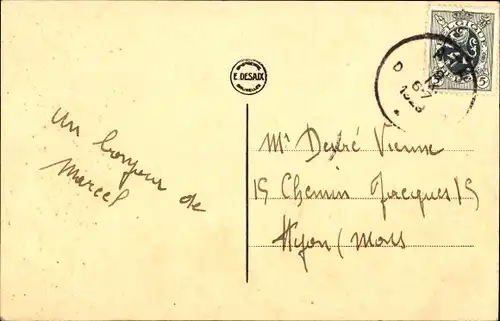 E. DESAIX
BRUXELLES
BELGIQUE
5
D 6-7
1929
un bonjour de
Marcel
Mr Desiré Vienne
15 Chemin Jacques 15
Hyon (Mons